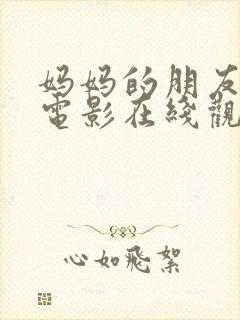 妈妈的朋友
電影在綫觀
心如飛絮